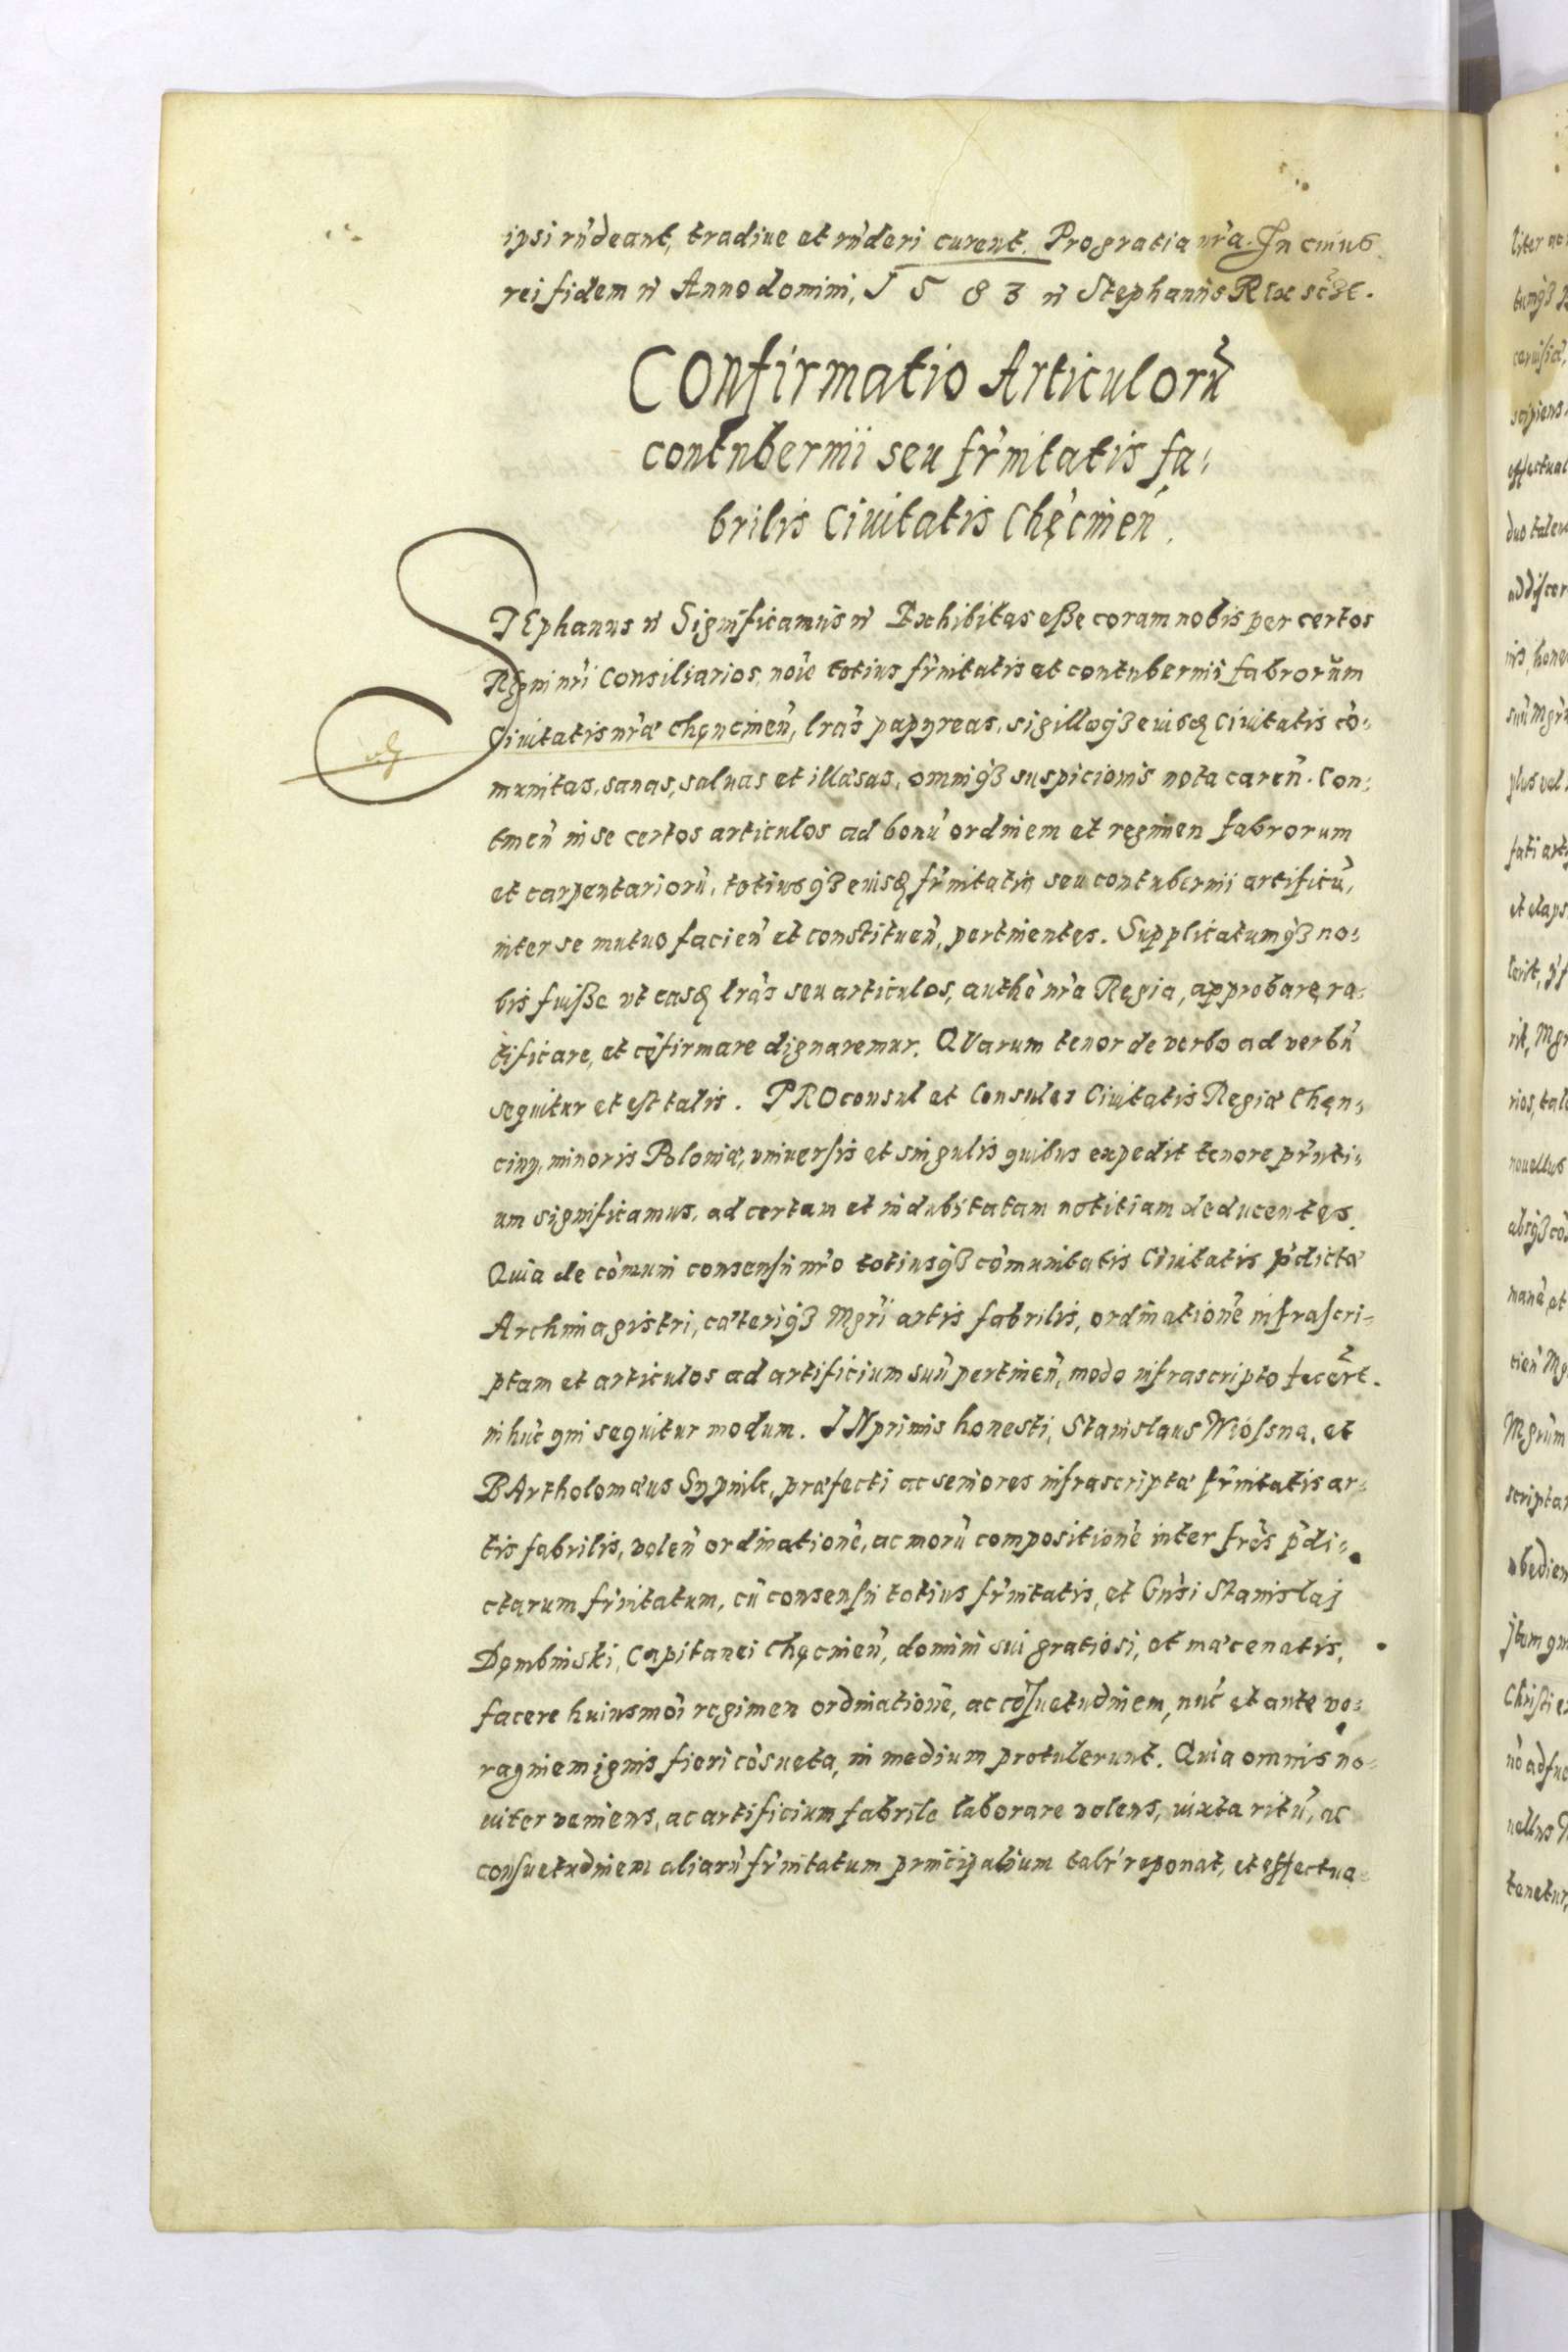 ipsi rn̄deant, tradiue et rn̄deri curent. Pro gratia nr̄a. In cuius
rei fidem n̄ Anno domini, 1583 n̄ Stephanus Rex sc̄z̄t.
Confirmatio Articulorū
contubernii seu fr̄nitatis fa:
brilis Ciuitatis Chęcinen̄.
STEphanus n̄ Significamus n̄ Exhibitas eße coram nobis per certos
Regni nr̄i Consiliarios, noīe totius fr̄nitatis et contubernii fabrorum
Ciuitatis nr̄æ Chęncinen̄, lrās papyreas, sigilloqȝ eiusꝗ Ciuitatis cō:
munitas, sanas, saluas et illæsas, omniqȝ suspicionis nota caren̄. Con:
tinen̄ in se certos articulos ad bonū ordinem et regimen fabrorum
et carpentariorū, totiusqȝ eiusꝗ fr̄nitatis seu contubernii artificū,
inter se mutuo facien̄ et constituen̄, pertinentes. Supplicatumqȝ no:
bis fuiße vt easꝗ lrās seu articulos, authē nr̄a Regia, approbare, ra:
tificare, et cōfirmare dignaremur. QVarum tenor de verbo ad verbū
sequitur et est talis. PROconsul et Consules Ciuitatis Regiæ Chęn:
ciny, minoris Poloniæ, vniuersis et singulis quibus expedit tenore pr̄nti:
um significamus, ad certam et indubitatam notitiam deducentes.
Quia de cōmuni consensu nr̄o totiusqȝ cōmunitatis Ciuitatis p̄dictæ
Archimagistri, cæteriqȝ Mgr̄i artis fabrilis, ordinationē infrascri:
ptam et articulos ad artificium suū pertinen̄, modo infrascripto fecēr̄t.
in hūc qui sequitur modum. INprimis honesti, Stanislaus Wiosna, et
BArtholomæus Sypnik, præfecti ac seniores infrascriptæ fr̄nitatis ar:
tis fabrilis, volen̄ ordinationē, ac morū compositionē inter frēs p̄di:
ctarum fr̄nitatum, cū consensu totius fr̄nitatis, et Gn̄si Stanislaj
Dęmbinski, Capitanei Chęcinen̄, domini sui gratiosi, et mæcenatis,
facere huiusmōi regimen ordinationē, ac cōsuetudinem, nūc et ante vo:
raginem ignis fieri cōsueta, in medium protulerunt. Quia omnis no:
uiter veniens, ac artificium fabrile laborare volens, iuxta ritū, ac
consuetudinem aliarū fr̄nitatum principalium talr̄ reponat, et effectua: